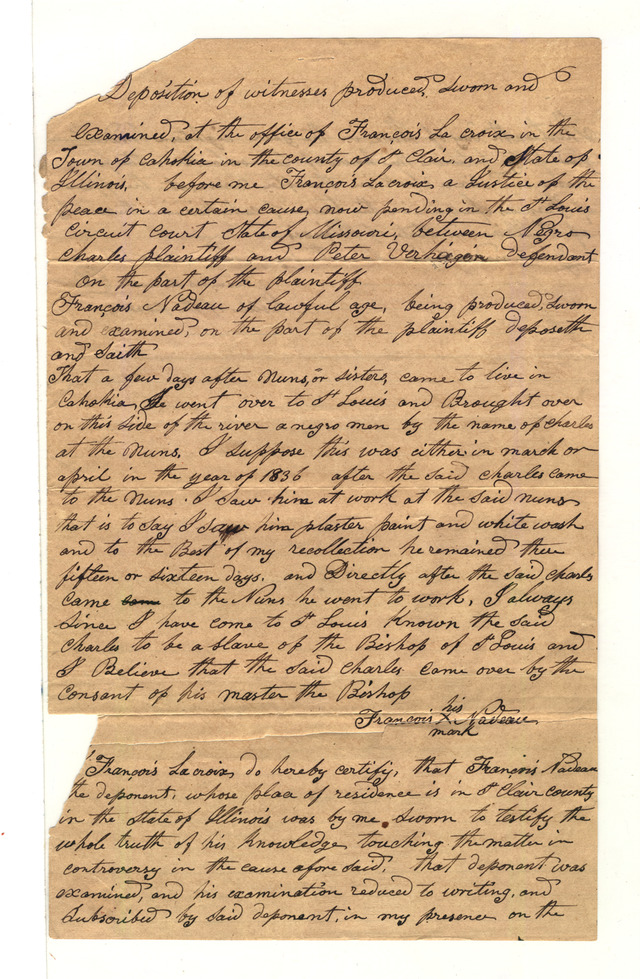 Deposition of witnesses produced, sworn and
examined, at the office of François La croix in the
Town of Cahokia in the county of St Clair, and State of
Illinois, before me François Lacroix a Justice of the
peace in a certain cause, now pending in the St Louis
Circuit court State of Missouri, between Negro
Charles plaintiff and Peter Verhægen defendant
on the part of the plaintiff
François Nadeau of lawful age, being produced, sworn
and examined, on the part of the plaintiff deposeth
and saith
That a few days after Nuns, or sisters, came to live in
Cahokia, he went over to St Louis and Brought over
on this side of the river a negro men by the name of Charles
at the Nuns, I suppose this was either in march or
april in the year of 1836 after the said Charles came
to the Nuns. I saw him at work at the said nuns
that is to say I saw him plaster paint and white wash
and to the Best of my recollection he remained there
fifteen or sixteen days, and Directly after the said charles
came to the Nuns he went to work, I always
since I have come to St Louis Known the said
Charles to be a slave of the Bishop of St Louis and
I Believe that the said Charles came over by the
consant of his master the Bishop
his
François X Nadeau
mark
François Lacroix, do hereby certify, that François Nadeau
the deponent, whose place of residence is in St Clair county
in the State of Illinois was by me Sworn to testify the
whole truth of his Knowledge touching the matter in
controversy in the cause afore said, that deponent was
examined, and his examination reduced to writing, and
Subscribed by said deponent, in my presence on the